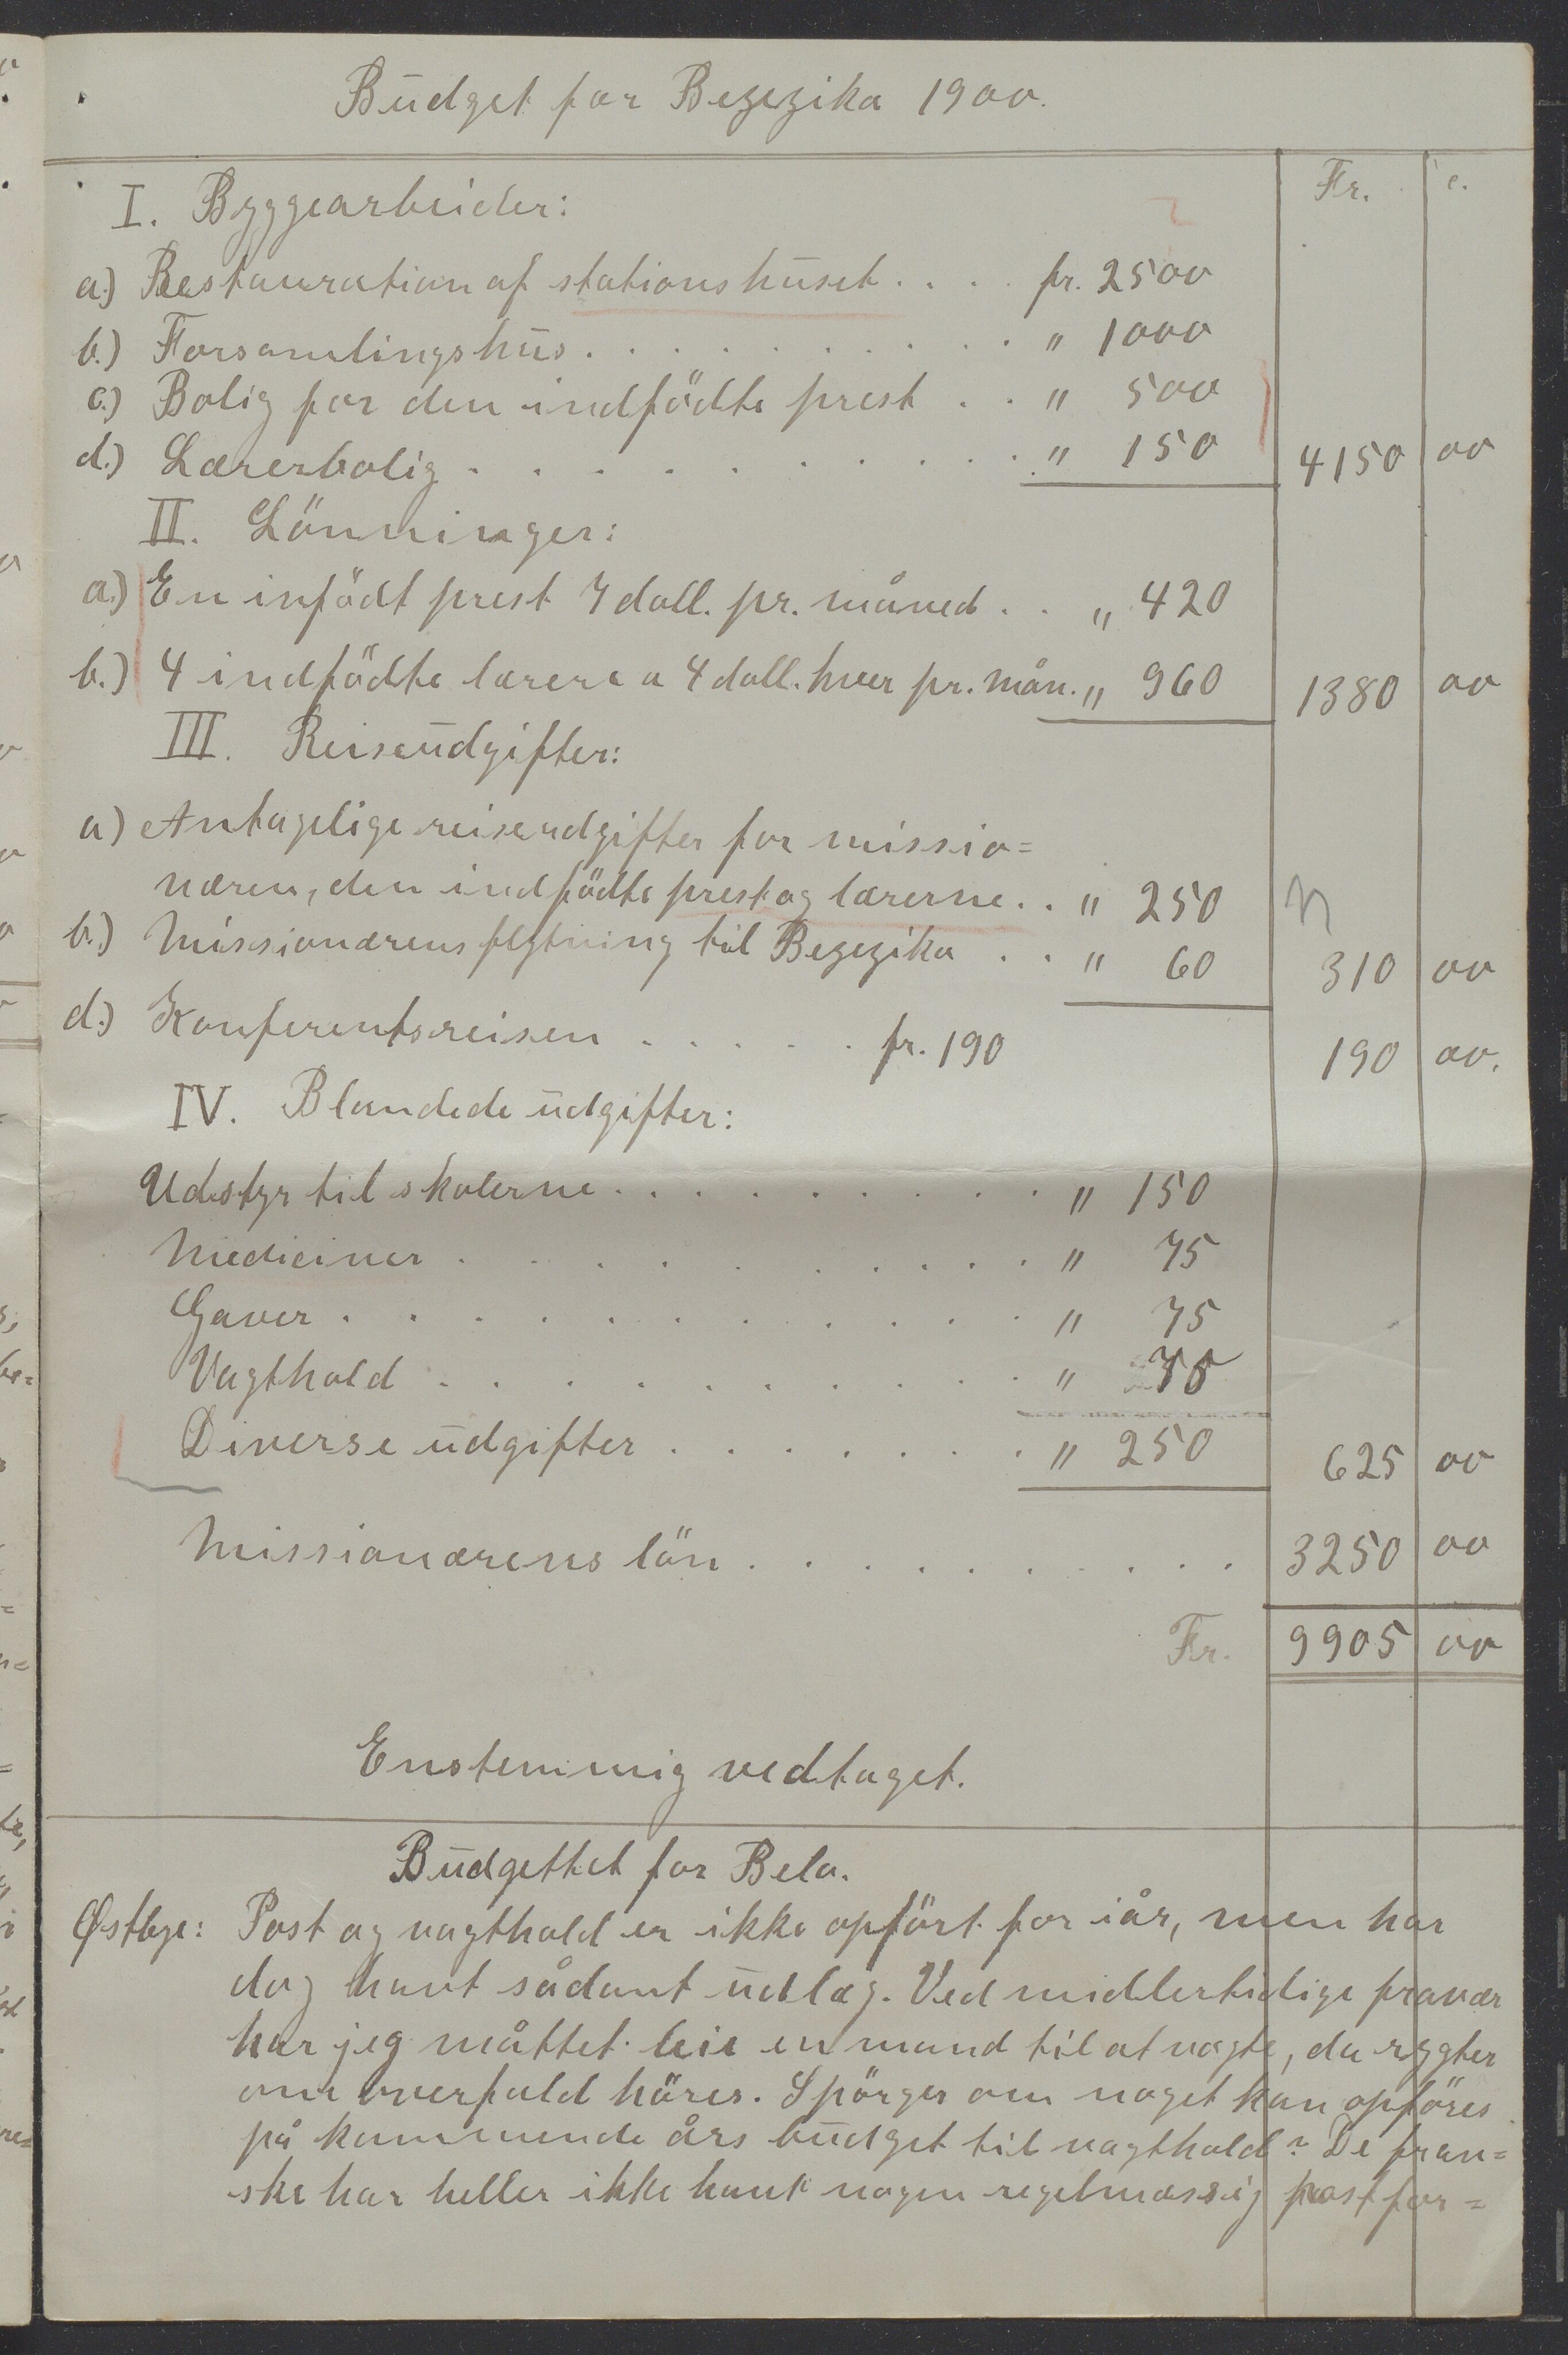 Budget for Bezezika 1900.
Fr. c.
I. Byggearbeider:
a.) Restauration af stationshuset. . . . fr. 2500
b.) Forsamlingshus. . . . . . . . . . . " 1000
c.) Bolig for den indfödte prest . . " 500
d.) Lærerbolig . . . . . . . . . . " 150 4150 00
II. Lönninger:
a.) En infödt prest 7 doll. pr. måned . . " 420
b.) 4 indfödte lærere a 4 doll. hver pr. mån. " 960 1380 00
III. Reiseudgifter:
a) Antagelige reiseudgifter for missio=
næren, den indfödte prest og lærerne. . " 250
b.) Missionærens flytning til Bezezika . . " 60 310 00
d.) Konferentsreisen . . . . . fr. 190 190 00.
IV. Blandede udgifter:
Udstyr til skolerne. . . . . . . . . " 150
Mediciner . . . . . . . . . . " 75
Gaver . . . . . . . . . . . " 75
Vagthold . . . . . . . . . . " 75
Diverse udgifter . . . . . . . " 250 625 00
Missionærens lön . . . . . . . . . 3250 00
Fr. 9905 00
Enstemmig vedtaget.
Budgettet for Belo.
Østbye: Post og vagthold er ikke opfört for iår, men har
dog havt sådant udlæg. Ved midlertidige fravær
har jeg måttet leie en mand til at vagte, da rygter
om overfald höres. Spörger om noget kan opföres
på kommende års budget til vagthold? De fran=
ske har heller ikke havt nogen regelmæssig postfor=